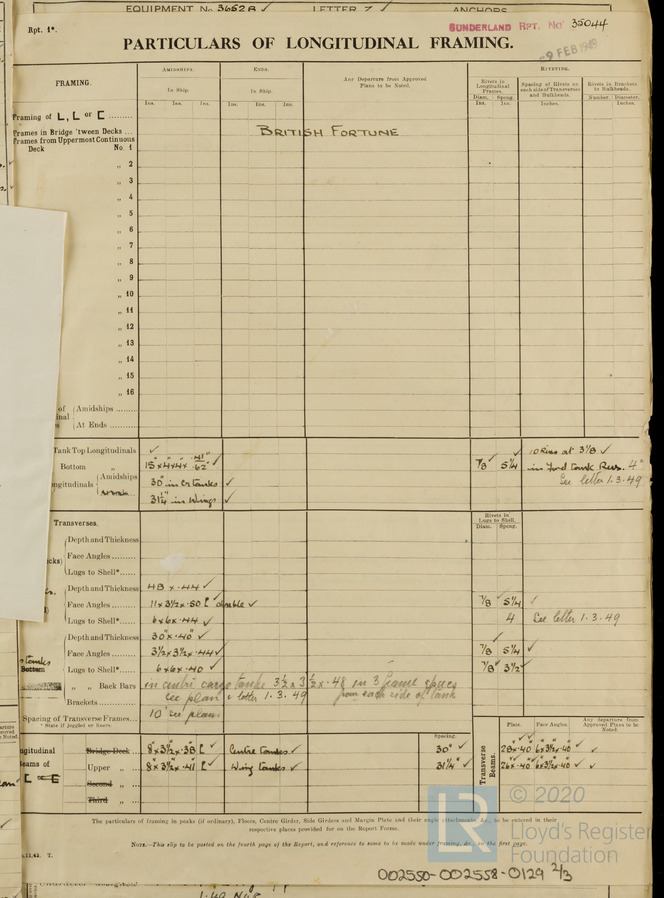 EQUIPMENT No. 3652 A / LETTER Z / ANCHORS
Rpt. 1*.
SUNDERLAND RPT. No 35044
9 FEB 1949
PARTICULARS OF LONGITUDINAL FRAMING.
FRAMING.
AMIDSHIPS.
ENDS.
Any Departure from Approved Plans to be Noted.
RIVETING.
In Ship.
In Ship.
Rivets in Longitudinal Frames.
Spacing of Rivets on each side of Transverses and Bulkheads.
Rivets in Brackets to Bulkheads.
Diam. Spcng.
Number. Diameter.
Ins. Ins. Ins. Ins. Ins. Ins. Ins. Ins. Inches. Inches.
Framing of L, L or [
Frames in Bridge 'tween Decks ...
BRITISH FORTUNE
Frames from Uppermost Continuous
Deck No. 1
„ 2
„ 3
„ 4
„ 5
„ 6
„ 7
„ 8
„ 9
„ 10
„ 11
„ 12
„ 13
„ 14
„ 15
„ 16
of Amidships
At Ends
Tank Top Longitudinals ✓
Bottom „ 15" x 4" x 4" x .41" .62" ✓ 7/8 5 1/4
10 Rivs at 3 1/8 ✓
in Ford tank Rivs. 4"
See letter 1.3.49
Amidships 30" in Cr tanks ✓
31 1/4" in Wings ✓
Transverses.
Rivets in Lugs to Shell.
Diam. Spcng.
Depth and Thickness
Face Angles
Lugs to Shell*
Depth and Thickness 48 x .44 ✓
Face Angles 11 x 3 1/2 x .50 [ double ✓ 7/8 5 1/4 ✓
Lugs to Shell* 6 x 6 x .44 ✓ 4 See letter 1.3.49
Depth and Thickness 30" x .40" ✓
Face Angles 3 1/2 x 3 1/2 x .44 ✓ 7/8 5 1/4 ✓
Lugs to Shell* 6 x 6 x .40 ✓ 7/8 3 1/2 ✓
„ „ Back Bars in centre cargo tanks 3 1/2 x 3 1/2 x .48 in 3 frame spaces
see plan & letter 1.3.49 from each side of tank
Brackets
Spacing of Transverse Frames 10' see plan
* State if joggled or liners.
Spacing.
Bridge Deck 8" x 3 1/2 x .38 [ ✓ Centre tanks ✓ 30" ✓
Upper „ 8 x 3 1/2 x .41 [ ✓ Wing tanks ✓ 31 1/4" ✓
Second „
Third „
Transverse Beams.
Plate. Face Angles. Any departure from Approved Plans to be Noted.
28 x .40 6 x 3 1/2 x .40 ✓
26 x .40 6 x 3 1/2 x .40 ✓
The particulars of framing in peaks (if ordinary), Floors, Centre Girder, Side Girders and Margin Plate and their angle attachments &c., to be entered in their
respective places provided for on the Report Forms.
NOTE.—This slip to be posted on the fourth page of the Report, and reference to same to be made under framing, &c., on the first page.
© 2020
Lloyd's Register
Foundation
LR
002550-002558-0129 2/3